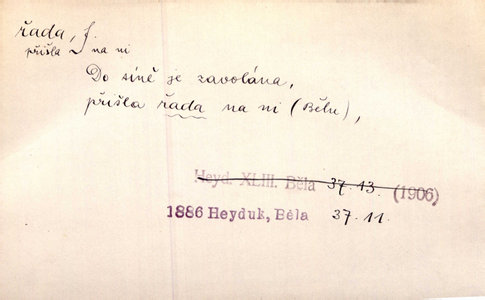 řada, f.
přišla ~ na ni
Do síně je zavolána,
přišla řada na ni (Bělu),
Heyd. XLIII. Běla 37.13. (1906)
1886 Heyduk, Běla 37.11.